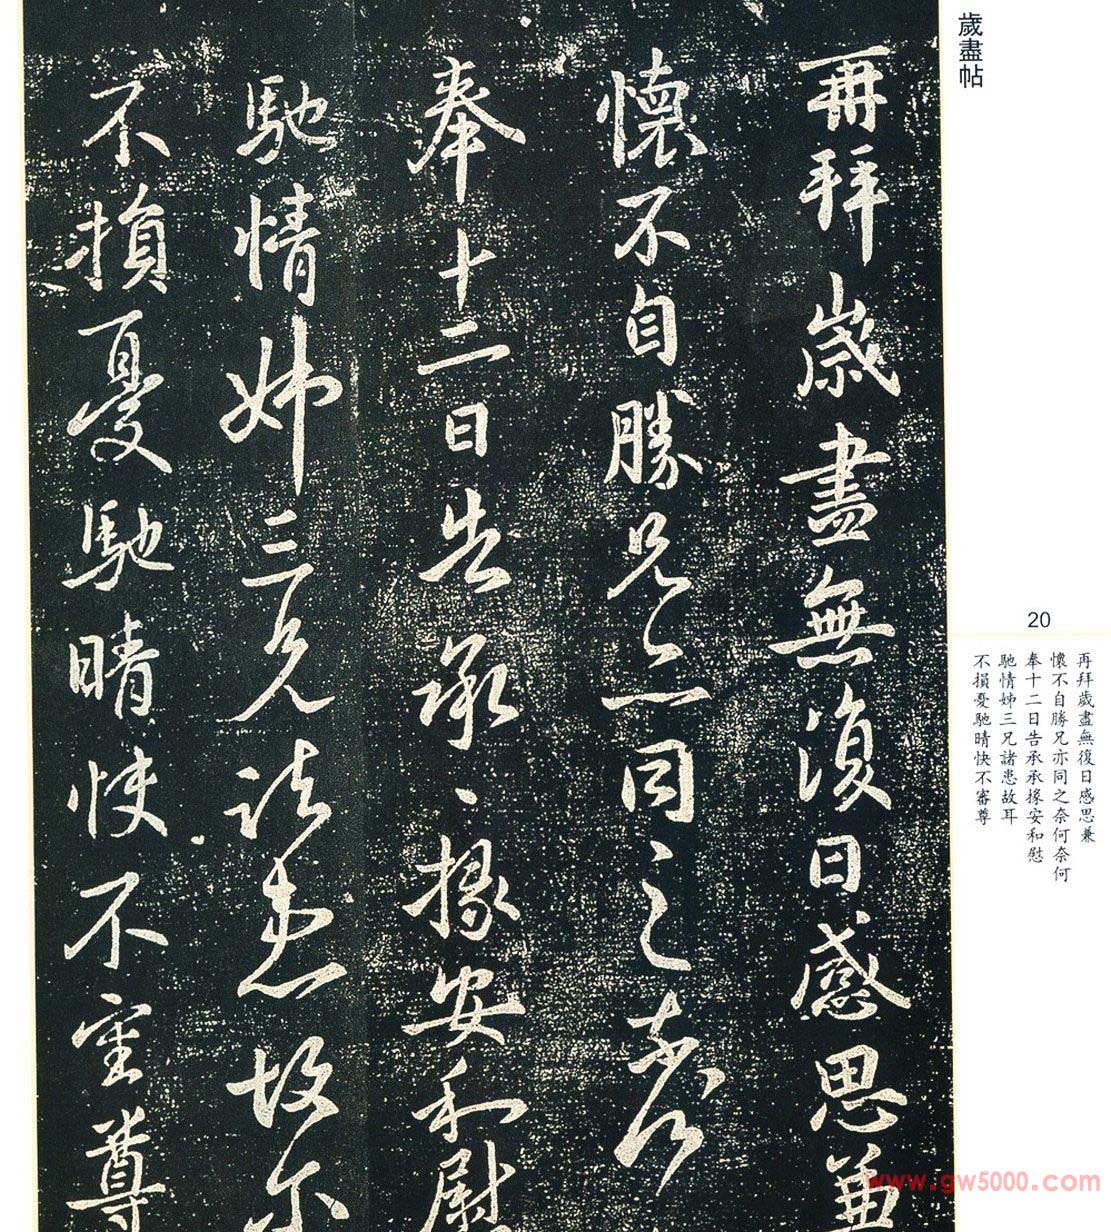 歲盡帖
再拜歲盡無復日感思兼
懷不自勝兄亦同之奈何
奉十二日告承、掾安和慰
馳情姊三兄諸患故尔
不損憂馳晴快不審尊
20
再拜歲盡無復日感思兼
懷不自勝兄亦同之奈何奈何
奉十二日告承承掾安和慰
馳情姊三兄諸患故耳
不損憂馳晴快不審尊
www.gw5000.com